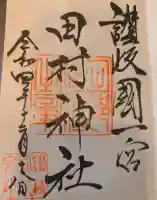 讃岐國一宮
田村神社
令和四年十二月